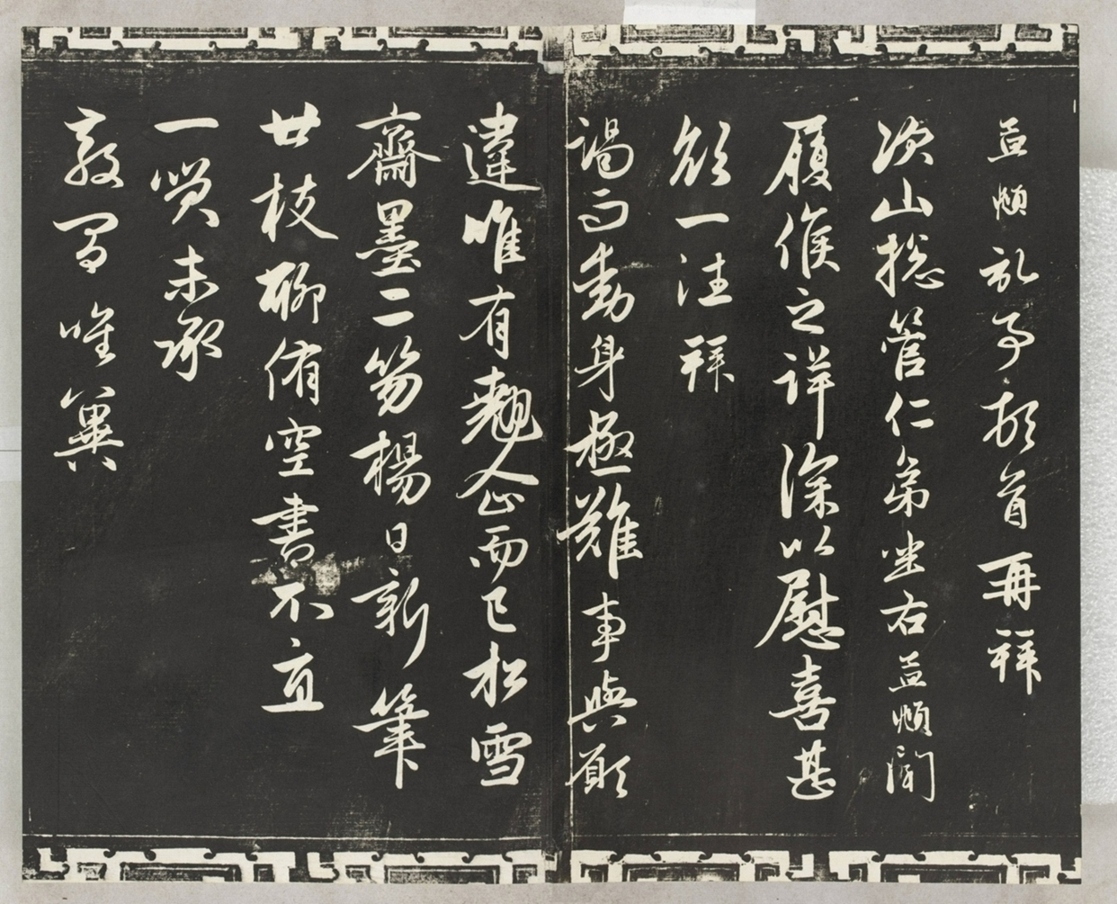 孟頫記事頓首再拜
次山總管仁弟坐右孟頫聞
履候之詳深以慰喜甚
欲一往拜
謁而動身極難事與願
違唯有翹企而已松雪
齋墨二笏楊日新筆
廿枝聊侑空書不宣
一笑未承
教間唯冀